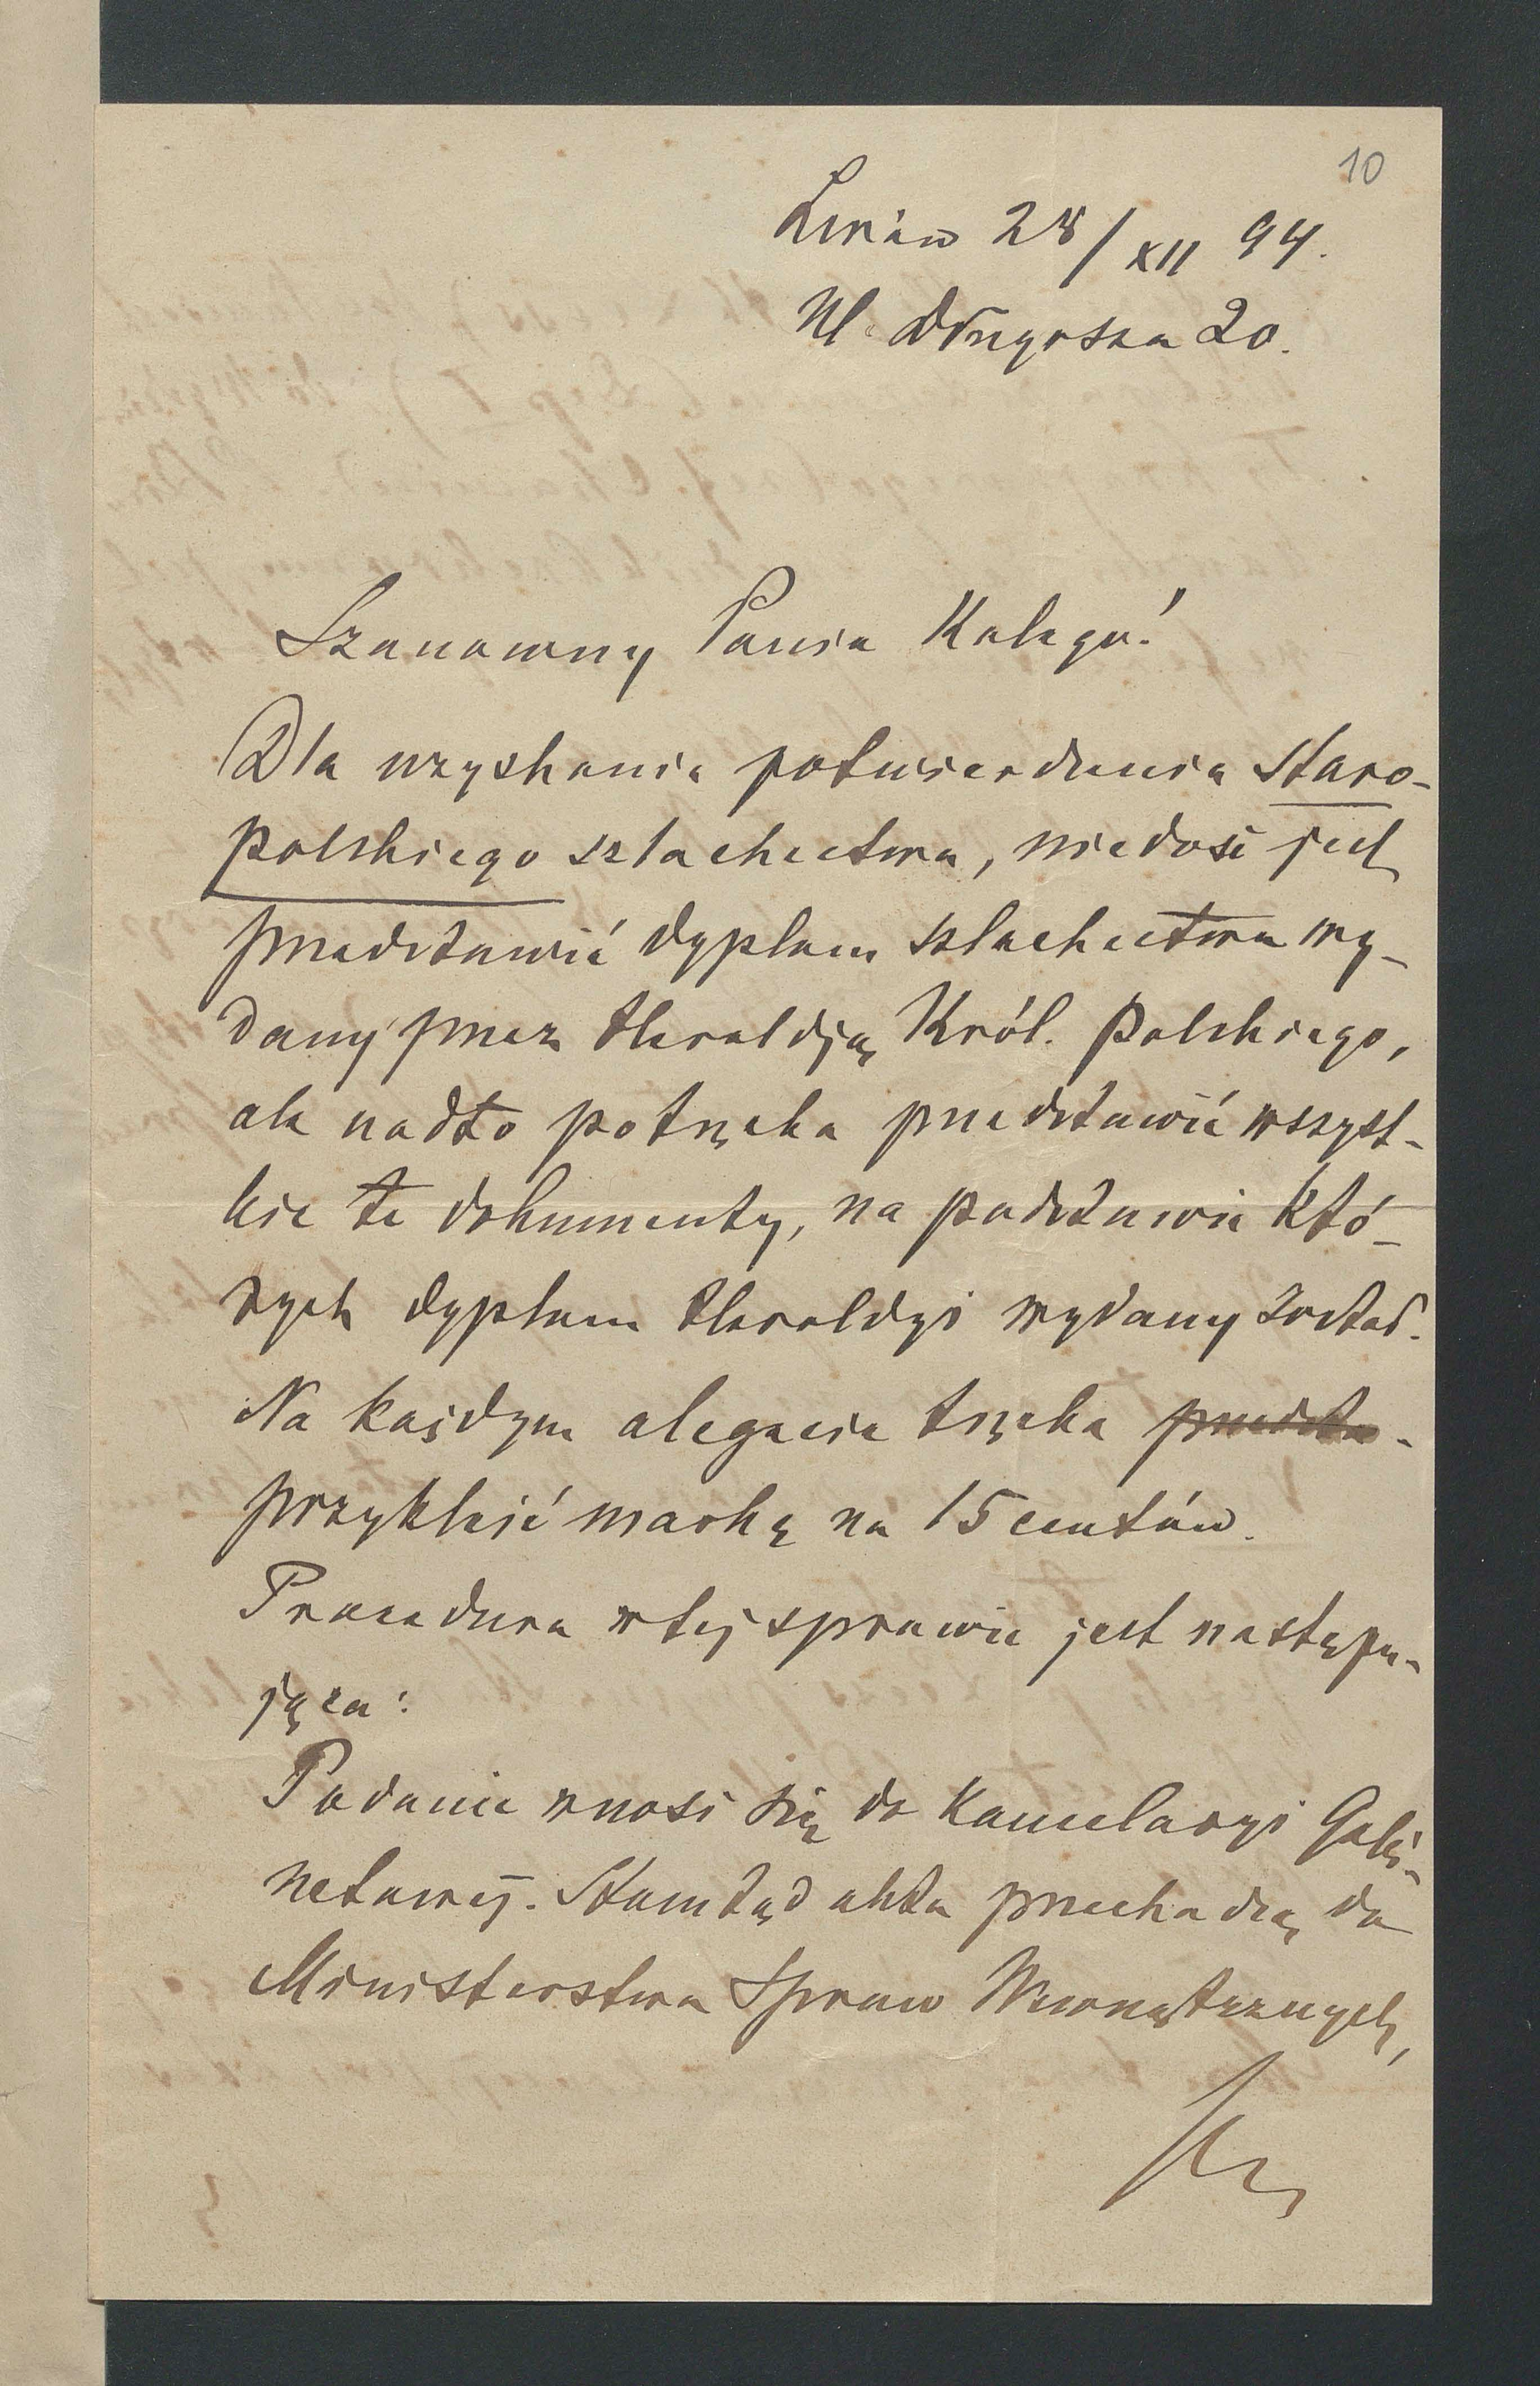 10
Lwów 28/XII 94.
Ul. Długosza 20.
Szanowny Panie Kolego!
Dla uzyskania potwierdzenia Staro-
polskiego szlachectwa, niedość jest
przedstawić dyplom szlachectwa wy-
dany przez Heroldją Król. Polskiego,
ale nadto potrzeba przedstawić wszyst-
kie te dokumenty, na podstawie któ-
rych dyplom Heroldyi wydany został.
Na każdym alegacie trzeba przedsta-
przykleić markę na 15 centów.
Procedura w tej sprawie jest następu-
jąca:
Podanie wnosi się do Kancelaryi Gabi-
netowej. Stamtąd akta przechodzą do
Ministerstwa Spraw Wewnętrznych,